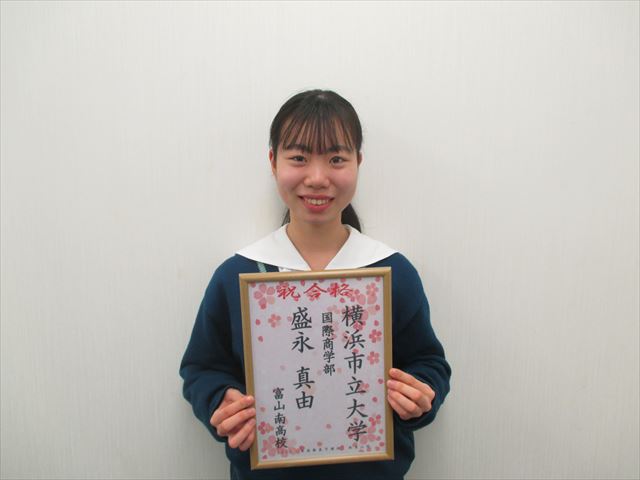 祝合格
横浜市立大学
国際商学部
盛永 真由
富山南高校